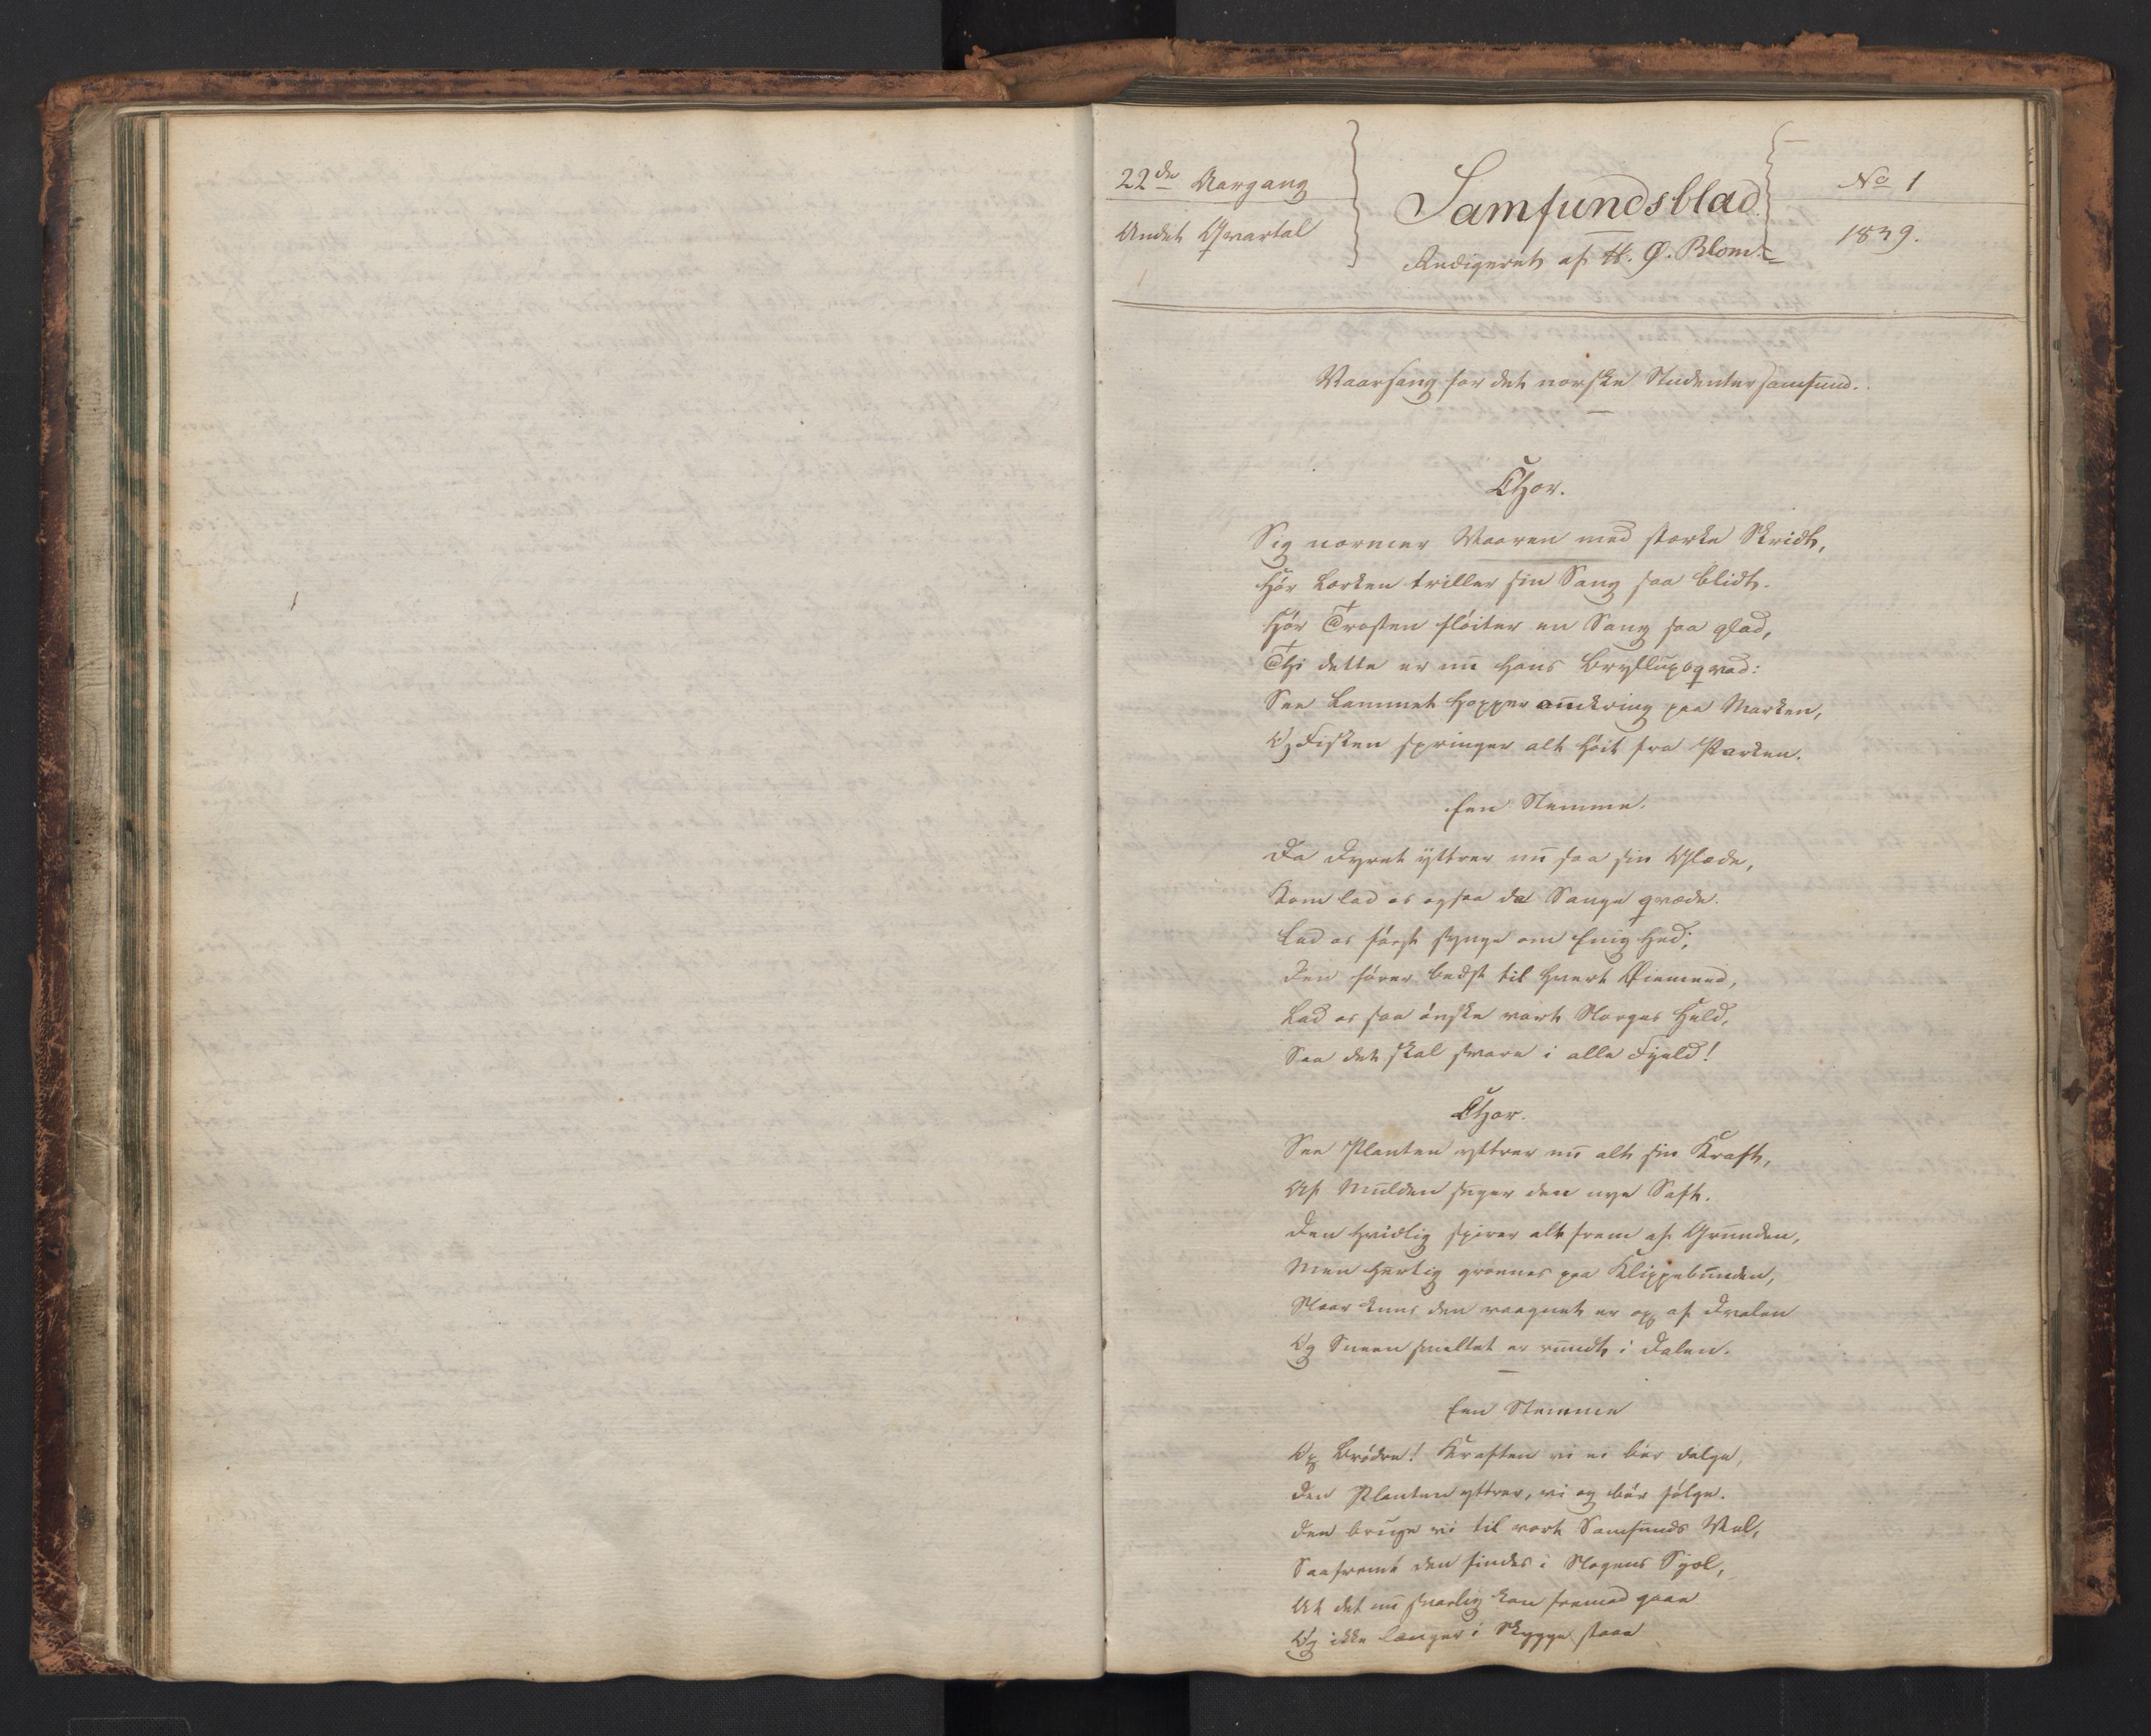 22de Aargang
Andet Qvartal
Samfundsblad
Redigeret af H. Ø. Blom.
No 1
1839.
Vaarsang for det norske Studentersamfund.
Chor.
Sig nærmer Vaaren med stærke Skridt,
Hør Lærken triller sin Sang saa blidt.
Hør Trosten fløiter en Sang saa glad,
Thi dette er nu hans Bryllupqvad:
See Lammet hopper omkring paa Marken,
Og Fisken springer alt høit fra Parken.
Een Stemme.
Da Dyret yttrer nu saa sin Glæde,
Kom lad os ogsaa da Sange qvæde.
Lad os først synge om Enighed;
Den fører bedst til hvert Øiemeed,
Lad os saa ønske vort Norges Held,
Saa det skal svare i alle Fjeld!
Chor.
See Planten yttrer nu alt sin Kraft,
Af Mulden suger den nye Saft.
Den hvidlig spirer alt frem af Grunden,
Men hurtig grønnes paa Klippebunden,
Naar kuns den vaagnet er op af Dvalen
Og Sneen smeltet er rundt i Dalen.
Een Stemme
Op Brødre! Kraften vi ei bør dølge,
Den Planten yttrer, vi og bør følge.
Den bruge vi til vort Samfunds Vel,
Saafremt den findes i Nogens Sjæl,
At det nu snarlig kan fremad gaae
Og ikke længer i Skygge staae